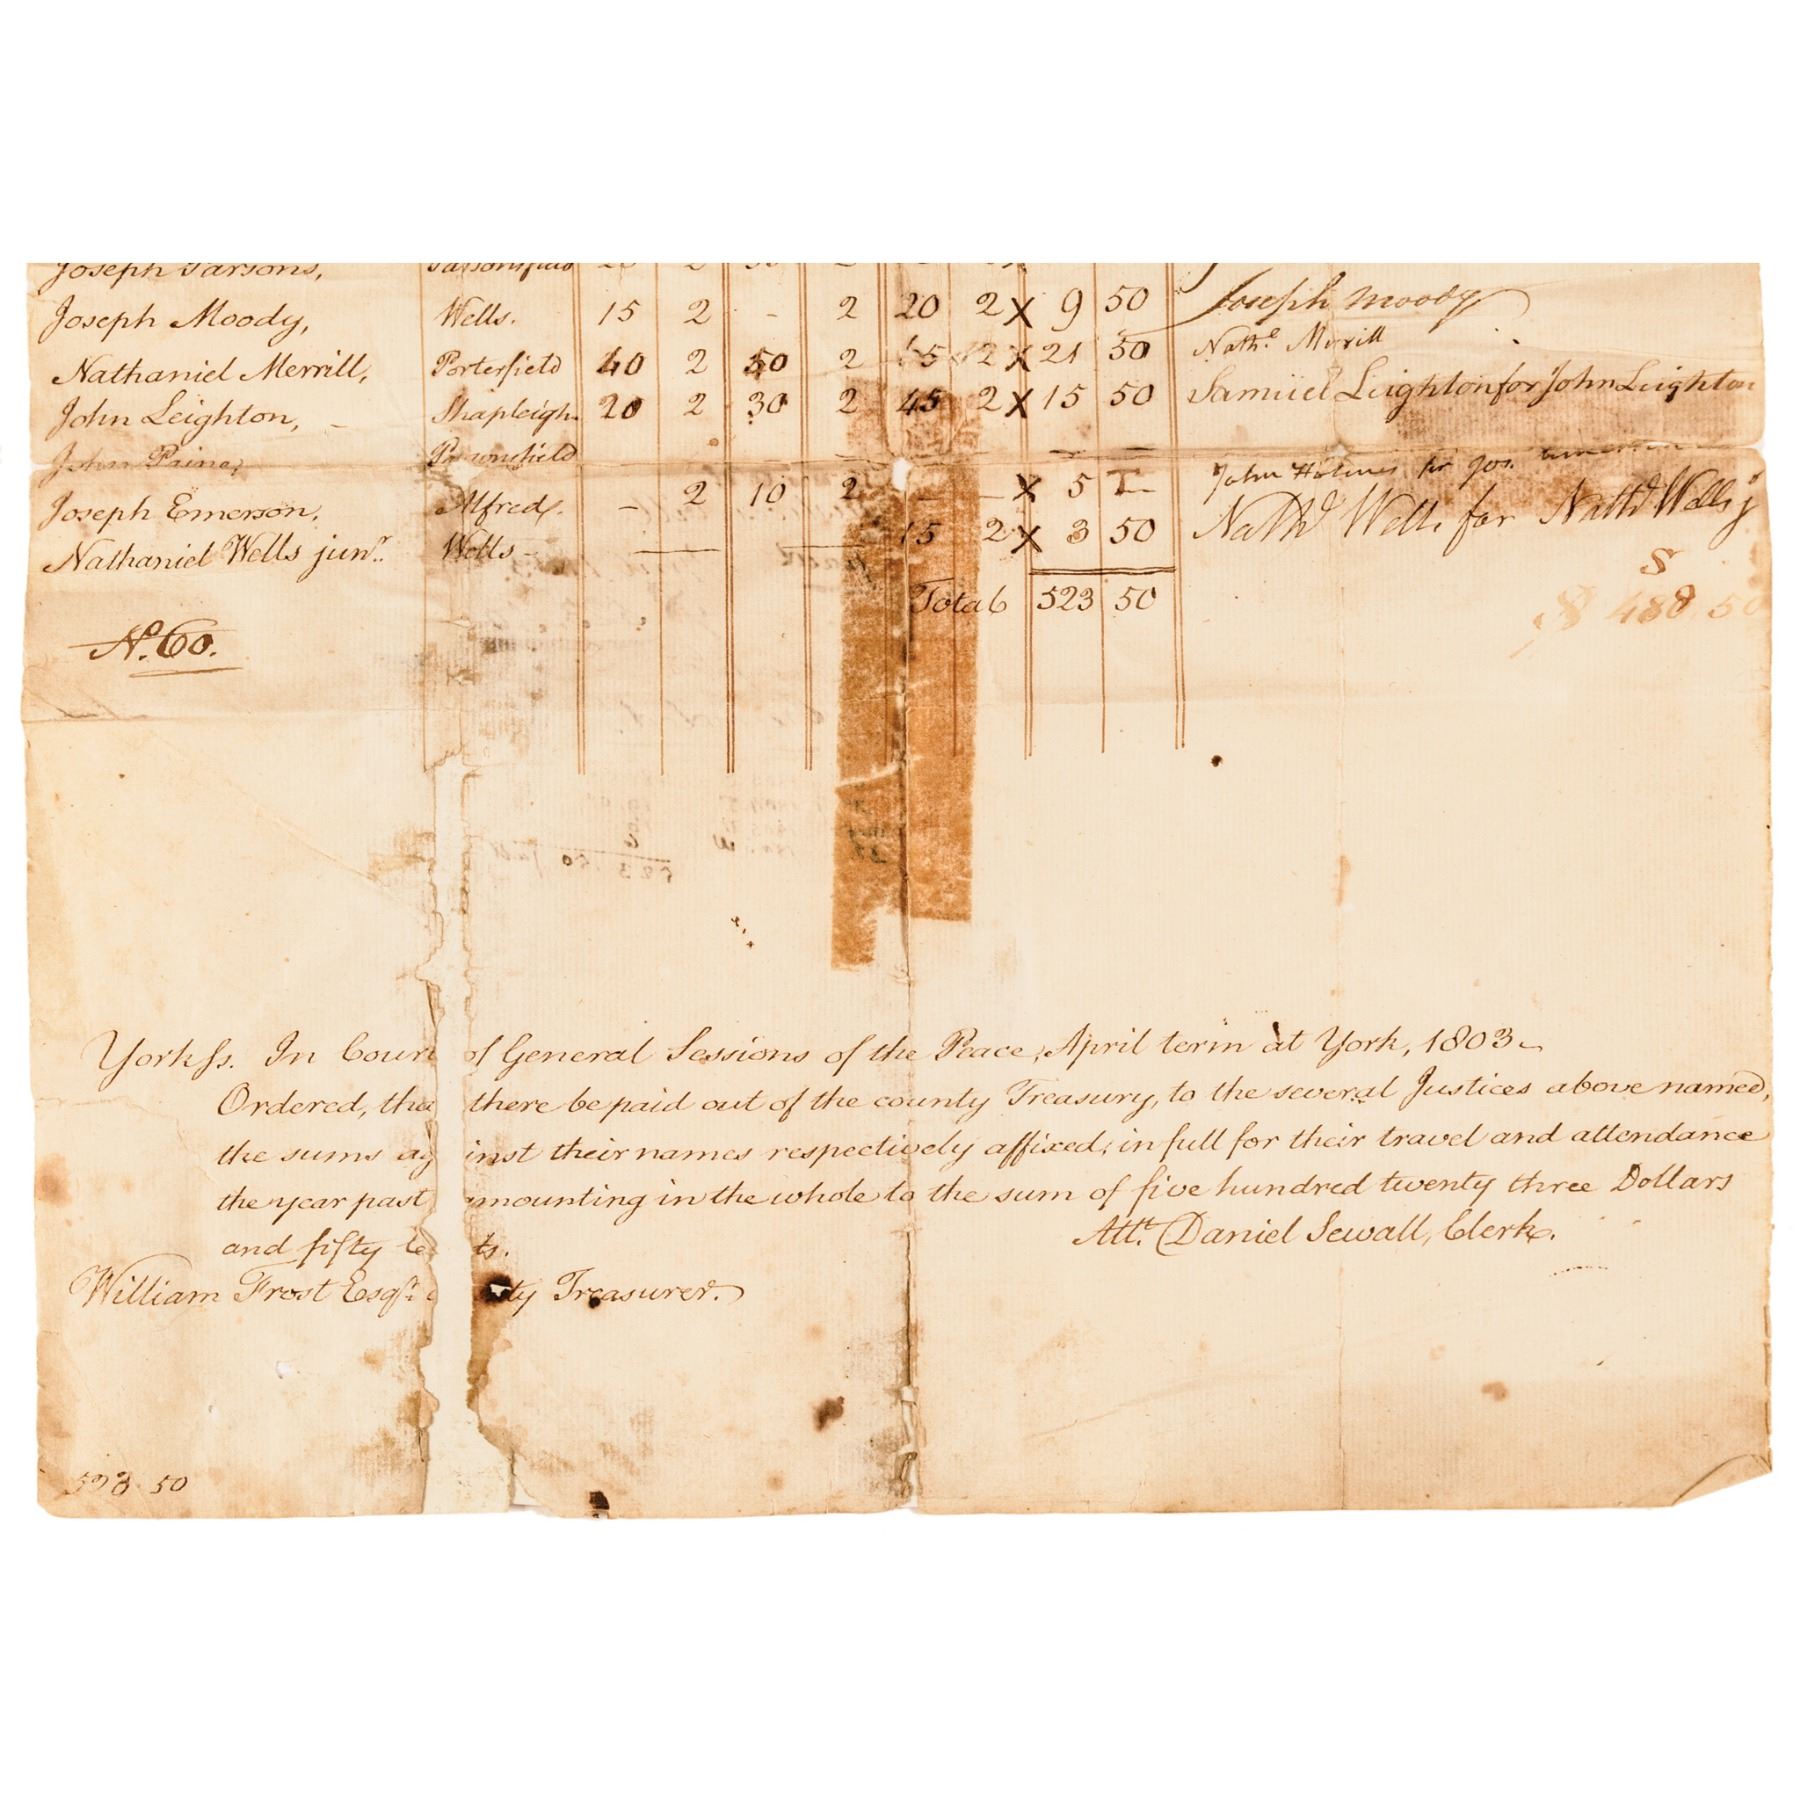 Joseph Parsons, Parsonsfield
Joseph Moody, Wells. 15 2 - 2 20 2 X 9 50 Joseph moody
Nathaniel Merrill, Porterfield 40 2 50 2 2 X 21 50 Nathl Merrill
John Leighton, Shapleigh. 20 2 30 2 45 2 X 15 50 Samuel Leighton for John Leighton
John Paine,
Joseph Emerson, Alfred. - 2 10 2 X 5 John Holmes for Jos. Emerson
Nathaniel Wells junr. Wells - 15 2 X 3 50 Nathd Wells for Nathd Wells jr
Total 523 50
$ 488 50
No. 60.
York ss. In Cour of General Sessions of the Peace, April term at York, 1803
Ordered, tha there be paid out of the county Treasury, to the several Justices above named,
the sums ag inst their names respectively affixed; in full for their travel and attendance
the year past, amounting in the whole to the sum of five hundred twenty three Dollars
and fifty ce ts.
Att. Daniel Sewall, Clerk.
William Frost Esqr. ty Treasurer.
523 50